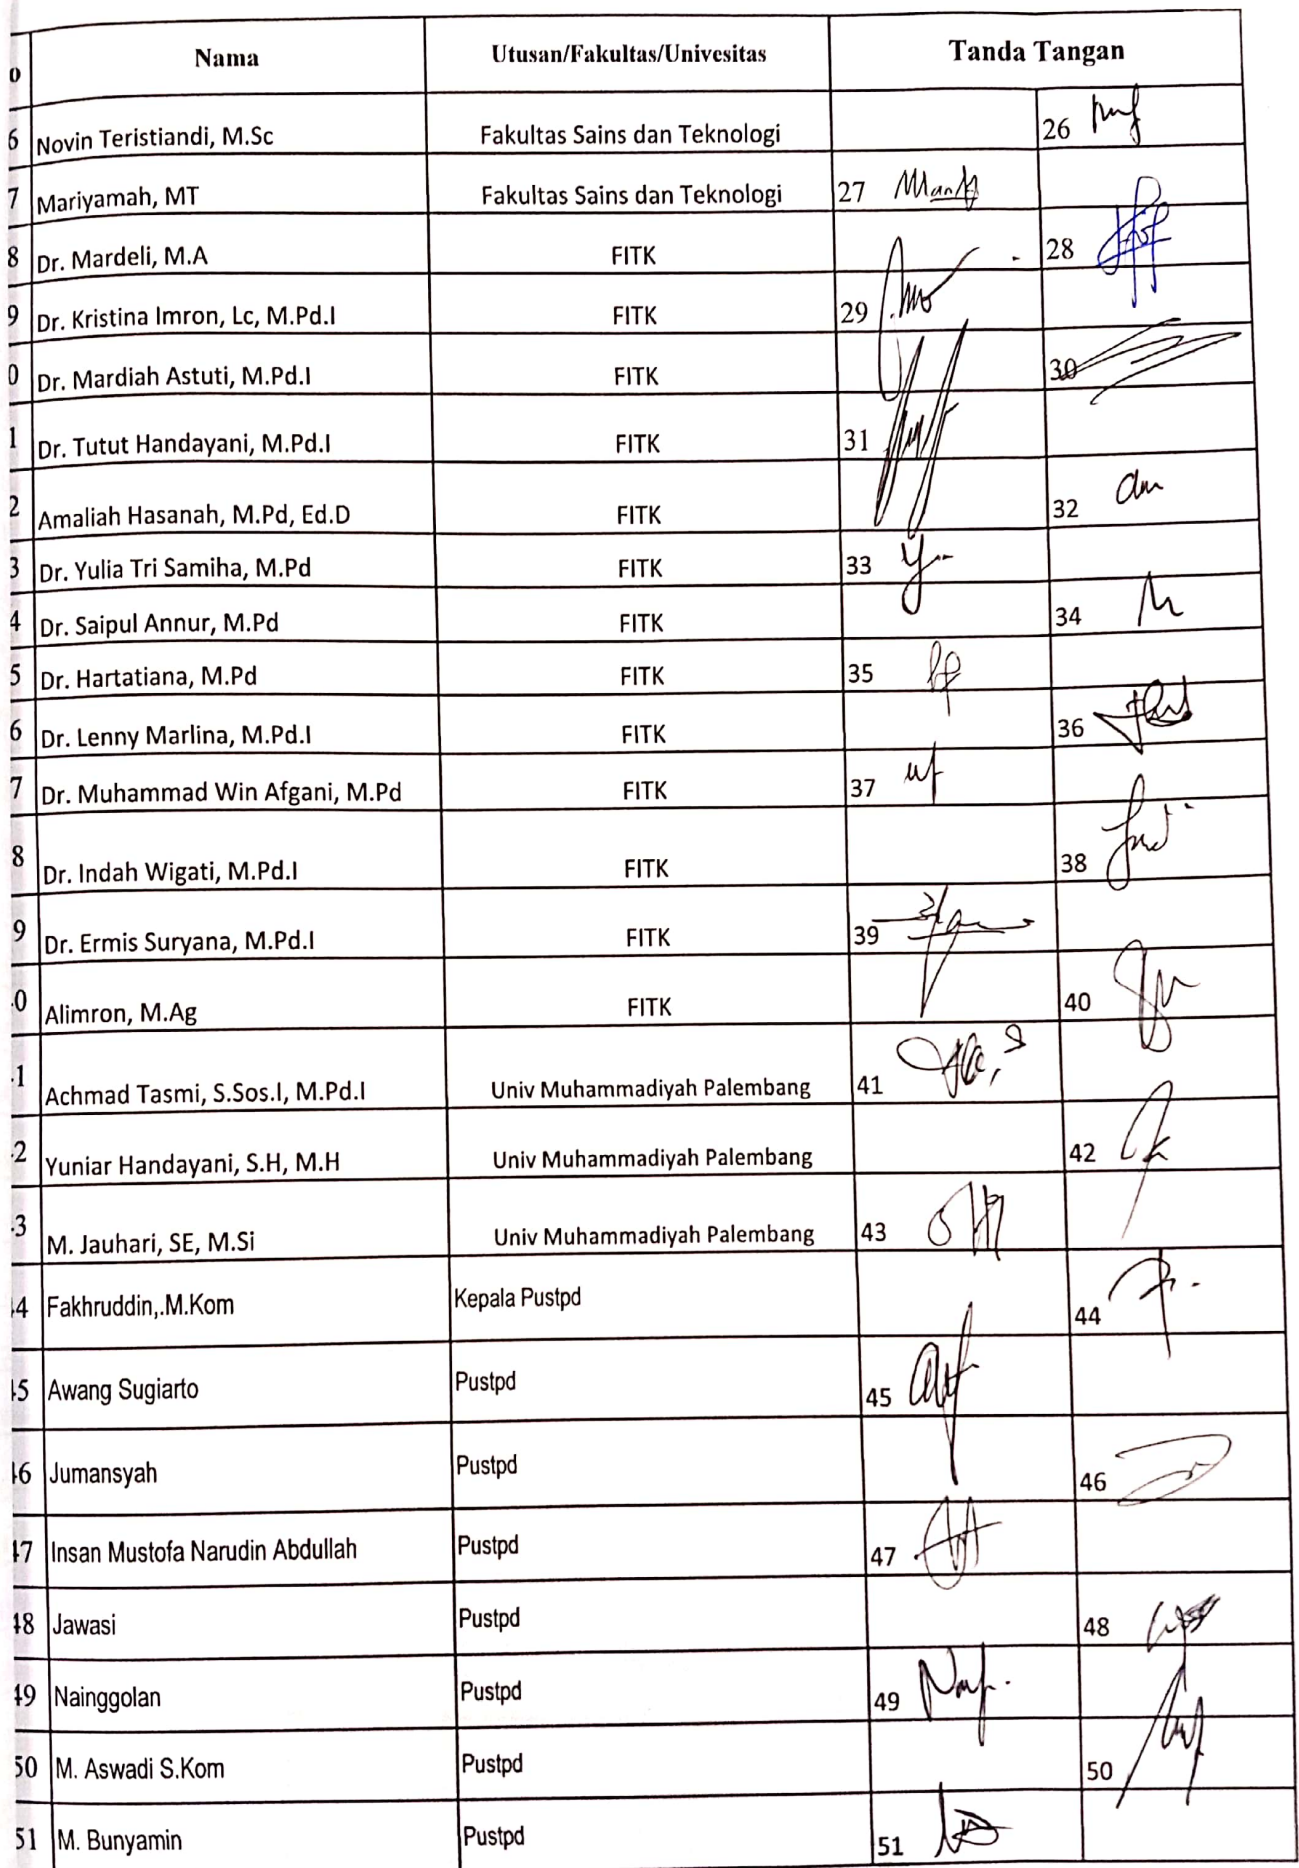 o Nama Utusan/Fakultas/Univesitas Tanda Tangan
6 Novin Teristiandi, M.Sc Fakultas Sains dan Teknologi 26
7 Mariyamah, MT Fakultas Sains dan Teknologi 27
8 Dr. Mardeli, M.A FITK 28
9 Dr. Kristina Imron, Lc, M.Pd.I FITK 29
0 Dr. Mardiah Astuti, M.Pd.I FITK 30
1 Dr. Tutut Handayani, M.Pd.I FITK 31
2 Amaliah Hasanah, M.Pd, Ed.D FITK 32
3 Dr. Yulia Tri Samiha, M.Pd FITK 33
4 Dr. Saipul Annur, M.Pd FITK 34
5 Dr. Hartatiana, M.Pd FITK 35
6 Dr. Lenny Marlina, M.Pd.I FITK 36
7 Dr. Muhammad Win Afgani, M.Pd FITK 37
8 Dr. Indah Wigati, M.Pd.I FITK 38
9 Dr. Ermis Suryana, M.Pd.I FITK 39
0 Alimron, M.Ag FITK 40
1 Achmad Tasmi, S.Sos.I, M.Pd.I Univ Muhammadiyah Palembang 41
2 Yuniar Handayani, S.H, M.H Univ Muhammadiyah Palembang 42
3 M. Jauhari, SE, M.Si Univ Muhammadiyah Palembang 43
44 Fakhruddin,.M.Kom Kepala Pustpd 44
45 Awang Sugiarto Pustpd 45
46 Jumansyah Pustpd 46
47 Insan Mustofa Narudin Abdullah Pustpd 47
48 Jawasi Pustpd 48
49 Nainggolan Pustpd 49
50 M. Aswadi S.Kom Pustpd 50
51 M. Bunyamin Pustpd 51